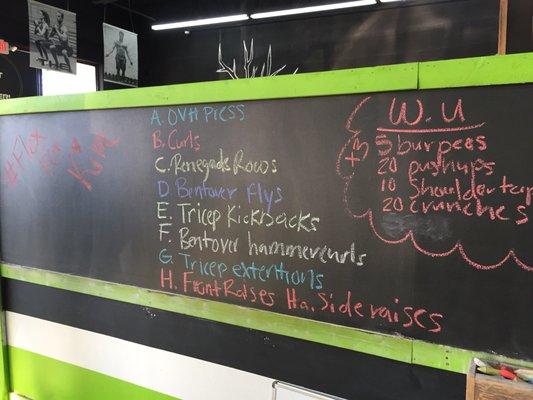 A. OVH Press
B. Curls
C. Renegade Rows
D. Bentover flys
E. Tricep Kickbacks
F. Bentover hammercurls
G. Tricep extentions
H. Front Raises Ha. Side raises
W.U
x3
5 burpees
20 pushups
10 Shoulder tap
20 crunches